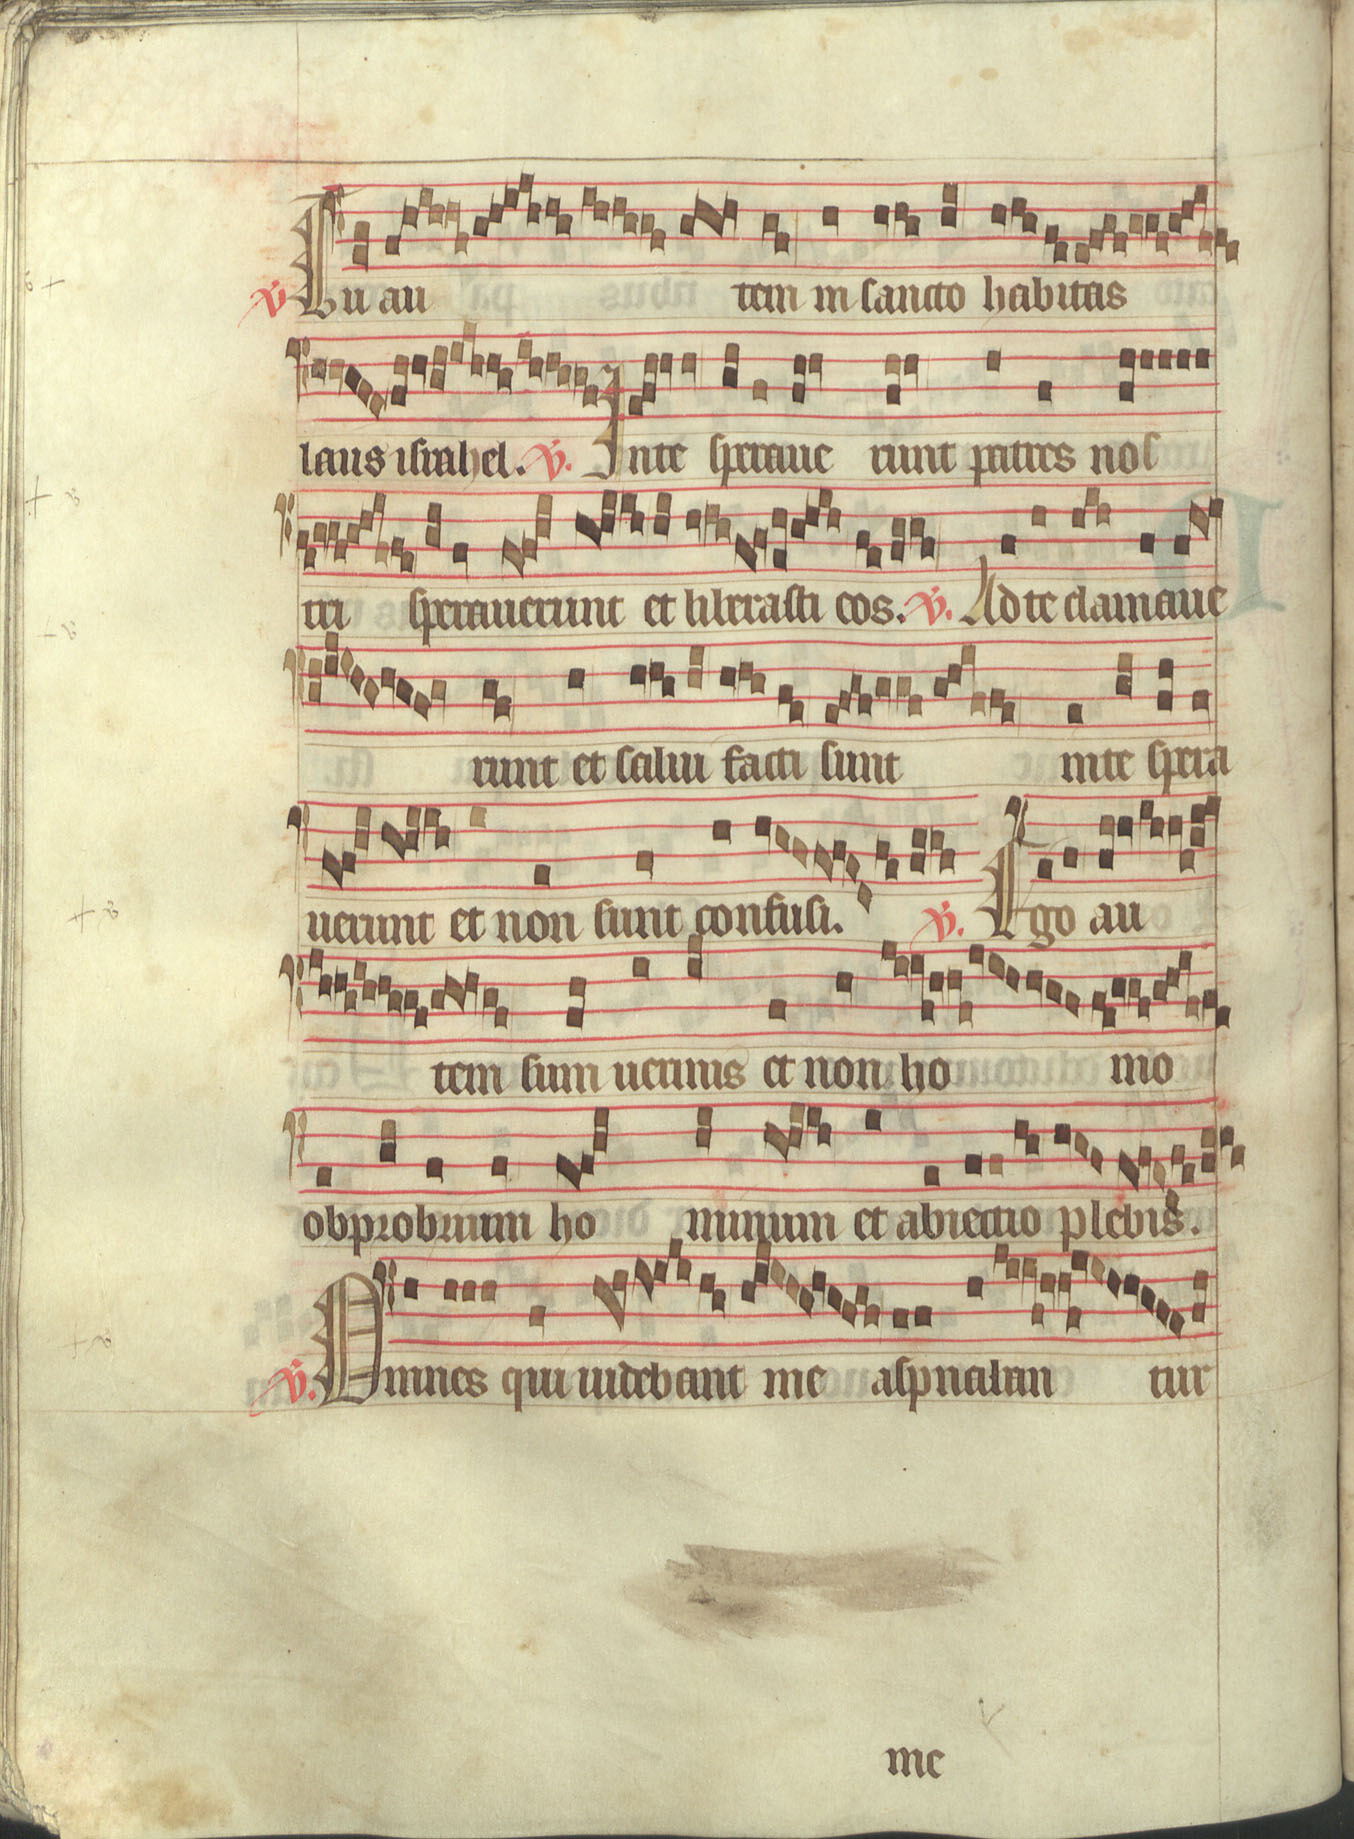 V Tu au tem in sancto habitas
laus israhel. V. In te speraue runt patres nos
tri sperauerunt et liberasti eos. V. Ad te clamaue
runt et salui facti sunt in te spera
uerunt et non sunt confusi. V. Ego au
tem sum uermis et non ho mo
obprobrium ho minum et abiectio plebis.
V. Omnes qui uidebant me aspnaban tur
me